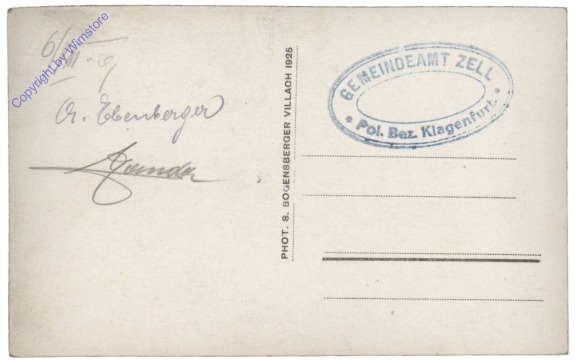 6/VIII - 29
Copyright by Wimstore
A. Ebenberger
PHOT. S. BOGENSBERGER VILLACH 1925
GEMEINDEAMT ZELL
* Pol. Bez. Klagenfurt. *